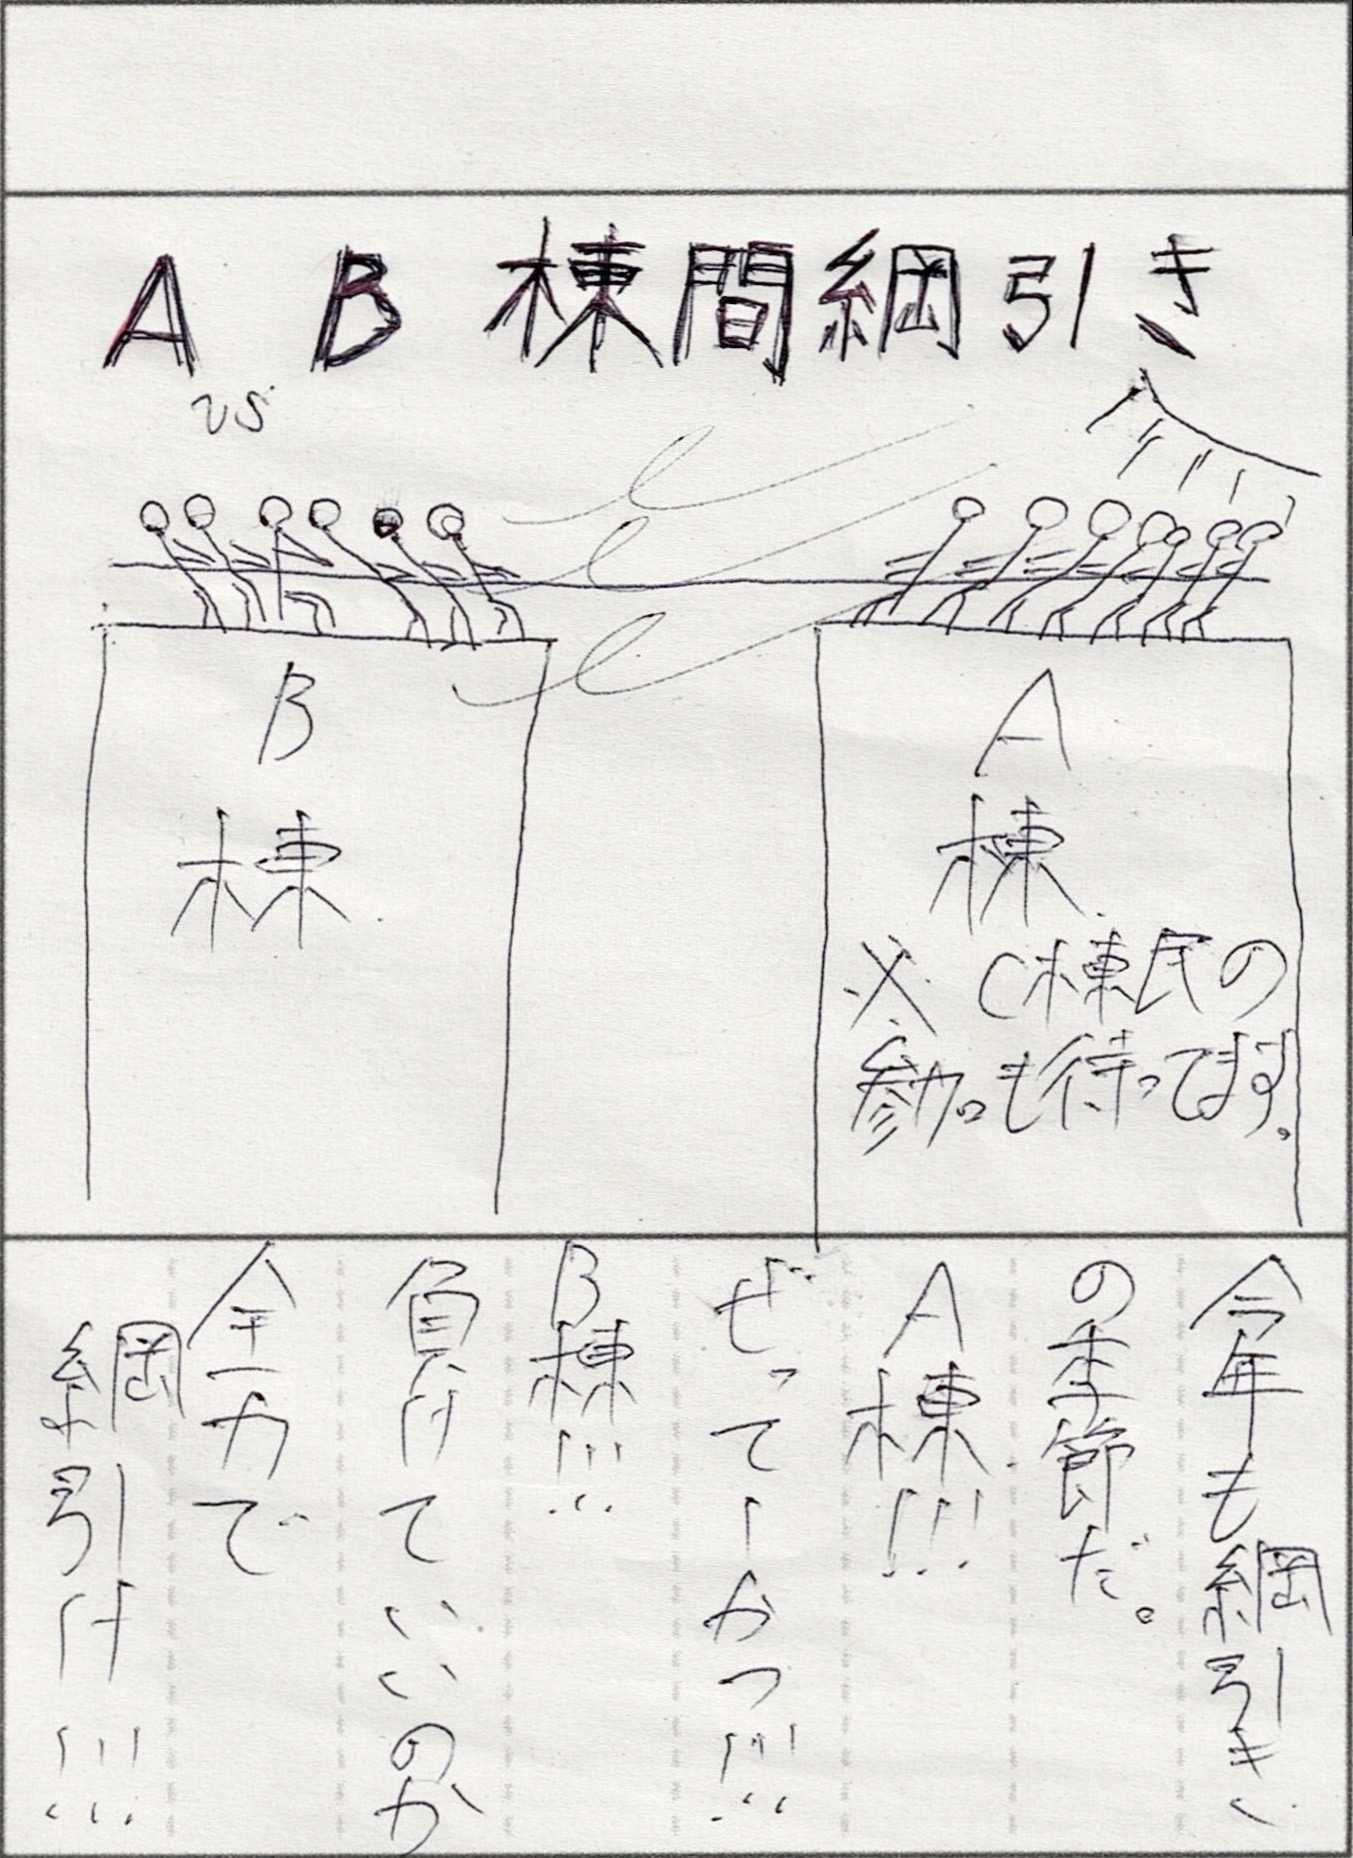 A B棟間綱引き
vs
B
棟
A
棟
※C棟民の
参加も待ってます。
今年も綱引き
の季節だ。
A棟!!!
ぜってーかつ!!!
B棟!!!
負けていいのか
全力で
綱引け!!!